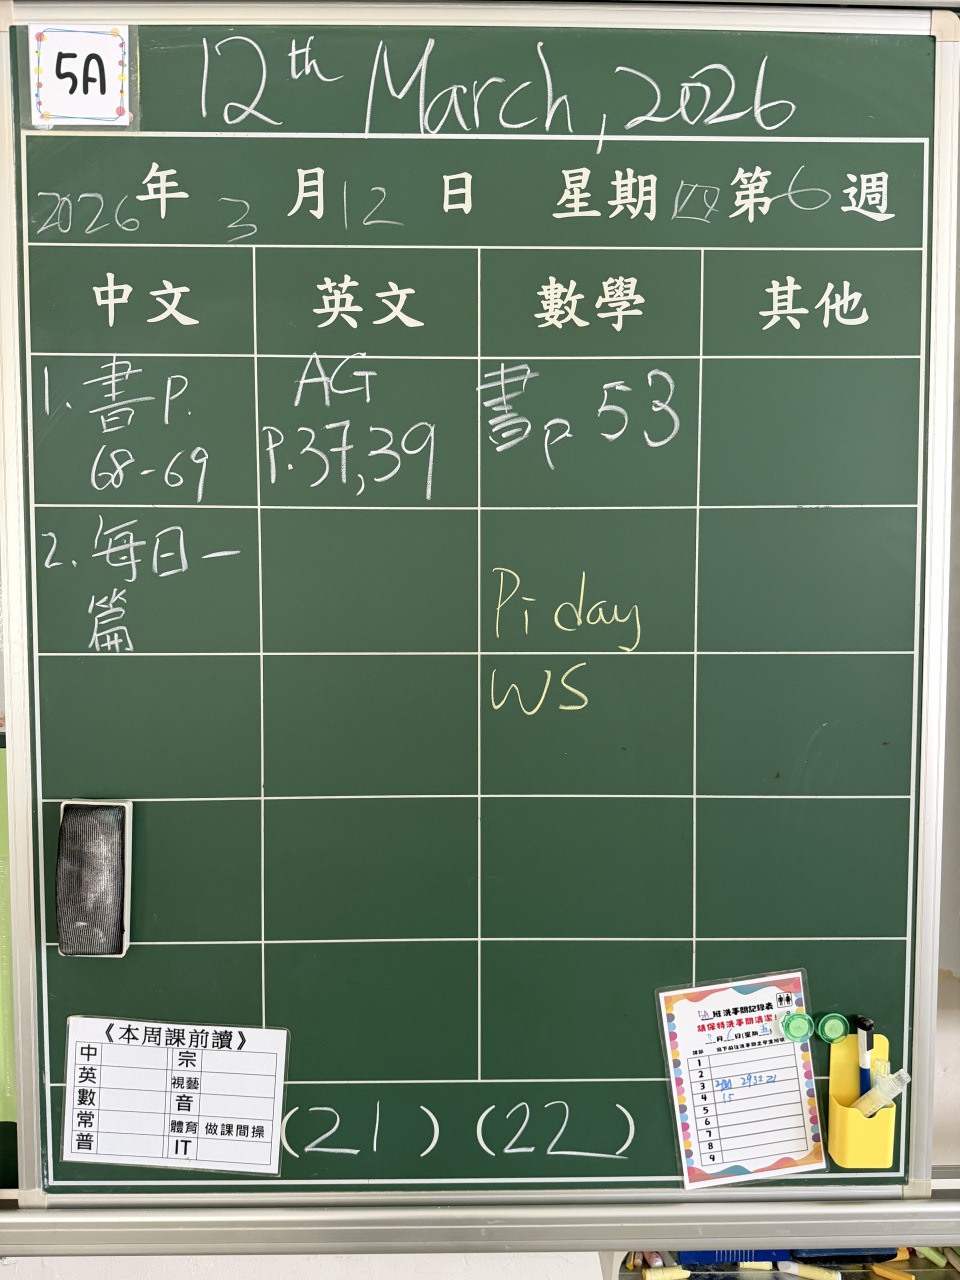 5A
12th March, 2026
2026年 3月12日 星期四第6週
中文 英文 數學 其他
1. 書 p. 68-69
AG P.37,39
書p 53
2. 每日一篇
Pi day
WS
《本周課前讀》
中 宗
英 視藝
數 音
常 體育 做課間操
普 IT
(21) (22)
5A 班洗手間記錄表
請保持洗手間清潔!
月 日(星期五)
1
2
3
4 15
5
6
7
8
9